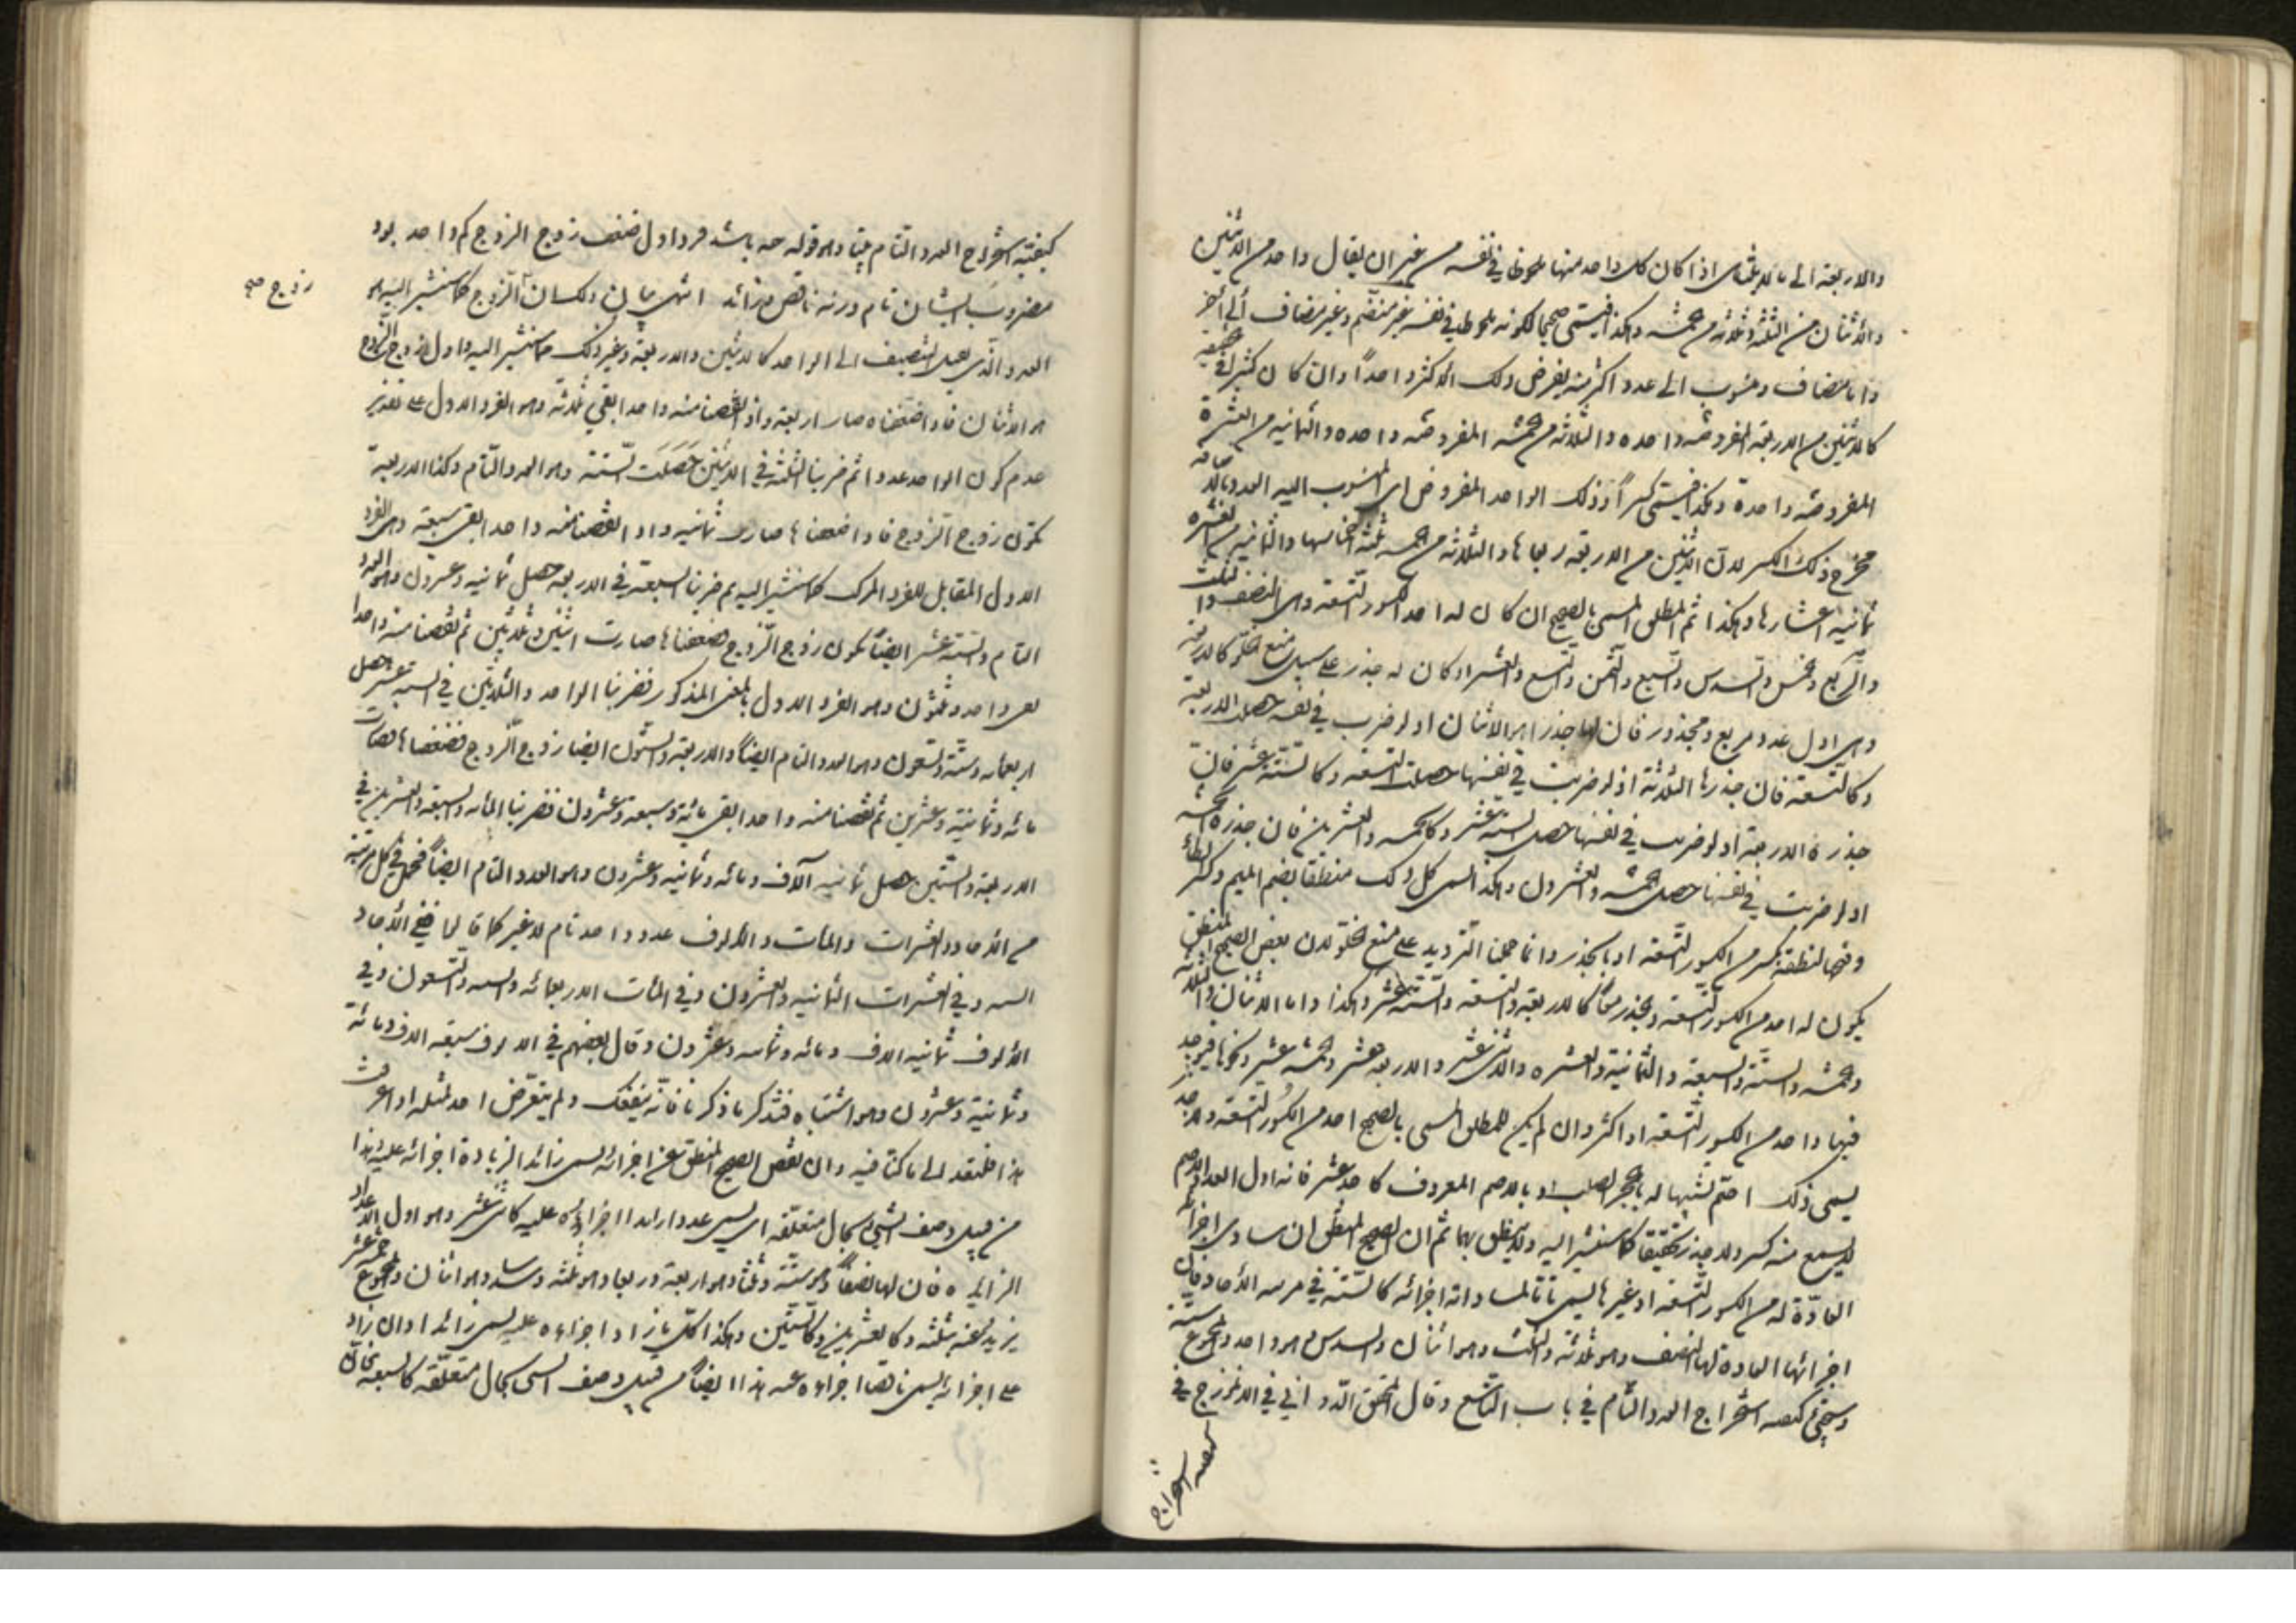 والاربعة الى ما لا يتناهى اذا كان كل واحد منها ملحوظا في نفسه من غير ان يقال واحد من الاثنين
والاثنان من الثلثة وثلاثة من خمسة وهكذا فيسمى صحيحا لكونه ملحوظا في نفسه غير منضم وغير مضاف الى آخر
واما مضاف ومنسوب الى عدد اكثر منه يفرض ذلك الاكثر واحداً وان كان كثيرا في حقيقته
كالاثنين من الاربعة المفروضة واحدة والثلاثة من خمسة المفروضة واحدة والثمانية من العشرة
المفروضة واحدة وهكذا فيسمى كسراً وذلك الواحد المفروض اى المنسوب اليه العدد
مخرج ذلك الكسر لان الاثنين من الاربعة ربعاها والثلاثة من خمسة ثلثة اخماسها والثمانية من العشرة
ثمانية اعشارها وهكذا ثم المطلق المسمى بالصحيح ان كان له احد الكسور التسعة وهى النصف والثلث
والربع والخمس والسدس والسبع والثمن والتسع والعشر او كان له جذر على سبيل منع الخلو كالاربعة
وهى اول عدد مربع ومجذور فان لها جذرا هو الاثنان اذ لو ضرب في نفسه حصلت الاربعة
وكالتسعة فان جذرها الثلاثة اذ لو ضربت في نفسها حصلت التسعة وكالستة عشر فان
جذره الاربعة اذ لو ضربت في نفسها حصل الستة عشر وكالخمسة والعشرين فان جذره الخمسة
اذ لو ضربت في نفسها حصل الخمسة والعشرون وهكذا يسمى كل ذلك منطقا بضم الميم وكسر الطاء
وفتحها لنطقه بكسر من الكسور التسعة او بالجذر وانما حملنا الترديد على منع الخلو لان بعض الصحيح المنطق
يكون له احد من الكسور التسعة والجذر معاً كالاربعة والتسعة والستة عشر وهكذا واما الاثنان والثلاثة
والخمسة والستة والسبعة والثمانية والعشرة والاثنى عشر والاربعة عشر والخمسة عشر ونحوها فيوجد
فيها واحد من الكسور التسعة او اكثر وان لم يكن للمطلق المسمى بالصحيح احد من الكسور التسعة ولا جذر
يسمى ذلك اصم تشبيها له بالحجر الصلب او بالاصم المعروف كاحد عشر فانه اول العدد الاصم
لا يسمع منه كسر ولا جذر تحقيقا كما سنشير اليه ولا ينطق بهما ثم ان الصحيح المنطق ان ساوى اجزائه
العادّة له من الكسور التسعة او غيرها يسمى تاما لمساواته اجزائه كالستة في مرتبة الآحاد فان
اجزائها العادة لها النصف وهو ثلاثة والثلث وهو اثنان والسدس وهو واحد والمجموع ستة
وسيجئ كيفية استخراج العدد التام في باب التاسع وقال المحقق الدوانى في الانموزج في
كيفية استخراج
كيفية استخراج العدد التام بيتا وهو قوله چه باشد فرد اول ضعف زوج الزوج كم واحد بود
مضروب ايشان تام ورنه ناقص و زائد انتهى بيان ذلك ان الزوج كما سنشير اليه هو
زوج صح
العدد الذى يقبل التنصيف الى الواحد كالاثنين والاربعة وغير ذلك كما سنشير اليه واول زوج الزوج
هو الاثنان فاذا ضعفناه صار اربعة واذا نقصنا منه واحدا بقى ثلاثة وهو الفرد الاول على تقدير
عدم كون الواحد عددا ثم ضربنا الثلثة في الاثنين حصلت الستة وهو العدد التام وكذا الاربعة
تكون زوج الزوج فاذا ضعفناها صارت ثمانية واذا نقصنا منه واحدا بقى سبعة وهى الفرد
الاول المقابل للفرد المركب كما سنشير اليه ثم ضربنا السبعة في الاربعة حصل ثمانية وعشرون وهو العدد
التام والستة عشر ايضاً تكون زوج الزوج ضعفناها صارت اثنين وثلاثين ثم نقصنا منه واحدا
بقى واحد وثلثون وهو الفرد الاول بالمعنى المذكور فضربنا الواحد والثلاثين في الستة عشر حصل
اربعمائة وستة وتسعون وهو العدد التام ايضاً والاربعة والستون ايضا زوج الزوج فضعفناها صارت
مائة وثمانية وعشرين ثم نقصنا منه واحدا بقى مائة وسبعة وعشرون فضربنا المائة والسبعة والعشرين في
الاربعة والستين حصل ثمانية آلاف ومائة وثمانية وعشرون وهو العدد التام ايضاً فحصل في كل مرتبة
من الآحاد والعشرات والمآت والالوف عدد واحد تام لا غير كما قالوا ففي الآحاد
الستة وفي العشرات الثمانية والعشرون وفي المآت الاربعمائة والستة والتسعون وفي
الالوف ثمانية الاف ومائة وثمانية وعشرون وقال بعضهم في الالوف سبعة الاف ومائة
وثمانية وعشرون وهو اشتباه فتذكر ما ذكرنا فانه ينفعك ولم يتعرض احد لمثله
هذا فلنعد الى ما كنا فيه وان نقص الصحيح المنطق عن اجزائه يسمى زائدا لزيادة اجزائه عليه وهذا
من قبيل وصف الشئ بحال متعلقه اى يسمى عددا زائدا اجزاؤه عليه كاثنى عشر وهو اول الاعداد
الزايدة فان لها نصفاً وهو ستة وثلثا وهو اربعة وربعا وهو ثلثة وسدسا وهو اثنان والمجموع خمسة عشر
يزيد عنه بثلثة وكالعشرين وكالستين وهكذا كل ما زاد اجزاءه عليه يسمى زائدا وان زاد
على اجزائه يسمى ناقصا اجزاؤه عنه هذا ايضاً من قبيل وصف الشئ بحال متعلقه كالسبعة فان